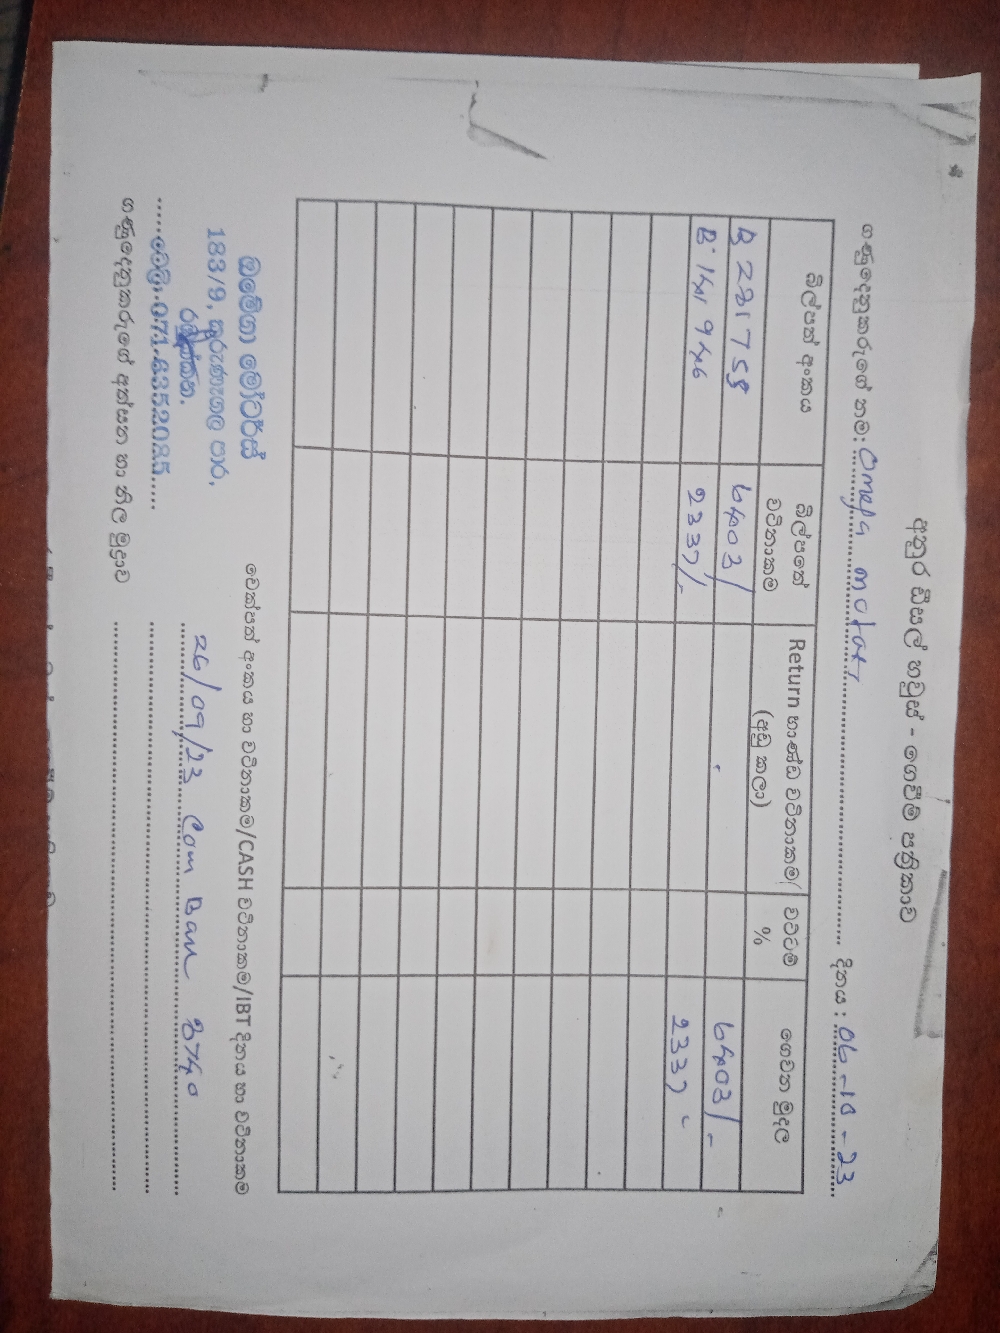 අනුර ඩීසල් හවුස් - ගෙවීම් පත්‍රිකාව
ගණුදෙනුකරුගේ නම: Omega motors දිනය : 06-10-23
බිල්පත් අංකය බිල්පතේ වටිනාකම Return භාණ්ඩ වටිනාකම (අඩු කලා) වට්ටම් % ගෙවන මුදල
B 281758 6403/ 6403/-
B 141946 2337/- 2337
ඔමේගා මෝටර්ස්
183/9, කුරුණෑගල පාර,
රඹුක්කන.
ටෙලි: 071-6352085
ගණුදෙනුකරුගේ අත්සන හා නිල මුද්‍රාව
චෙක්පත් අංකය හා වටිනාකම/CASH වටිනාකම/IBT දිනය හා වටිනාකම
26/09/23 Com Ban 8740